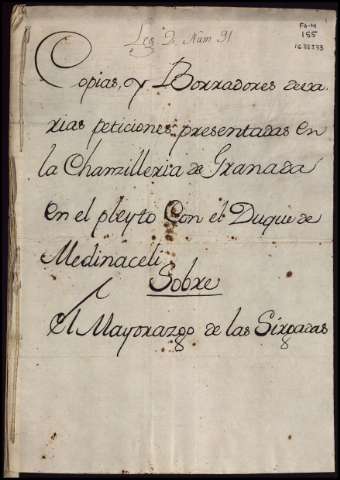 Leg 2. Num 31
FA-M
155
Copias, y Borradores deva-
rias peticiones, presentadas en
la Chanzilleria de Granada
en el pleyto Con el Duque de
Medinaceli
Sobre
El Mayorazgo de las